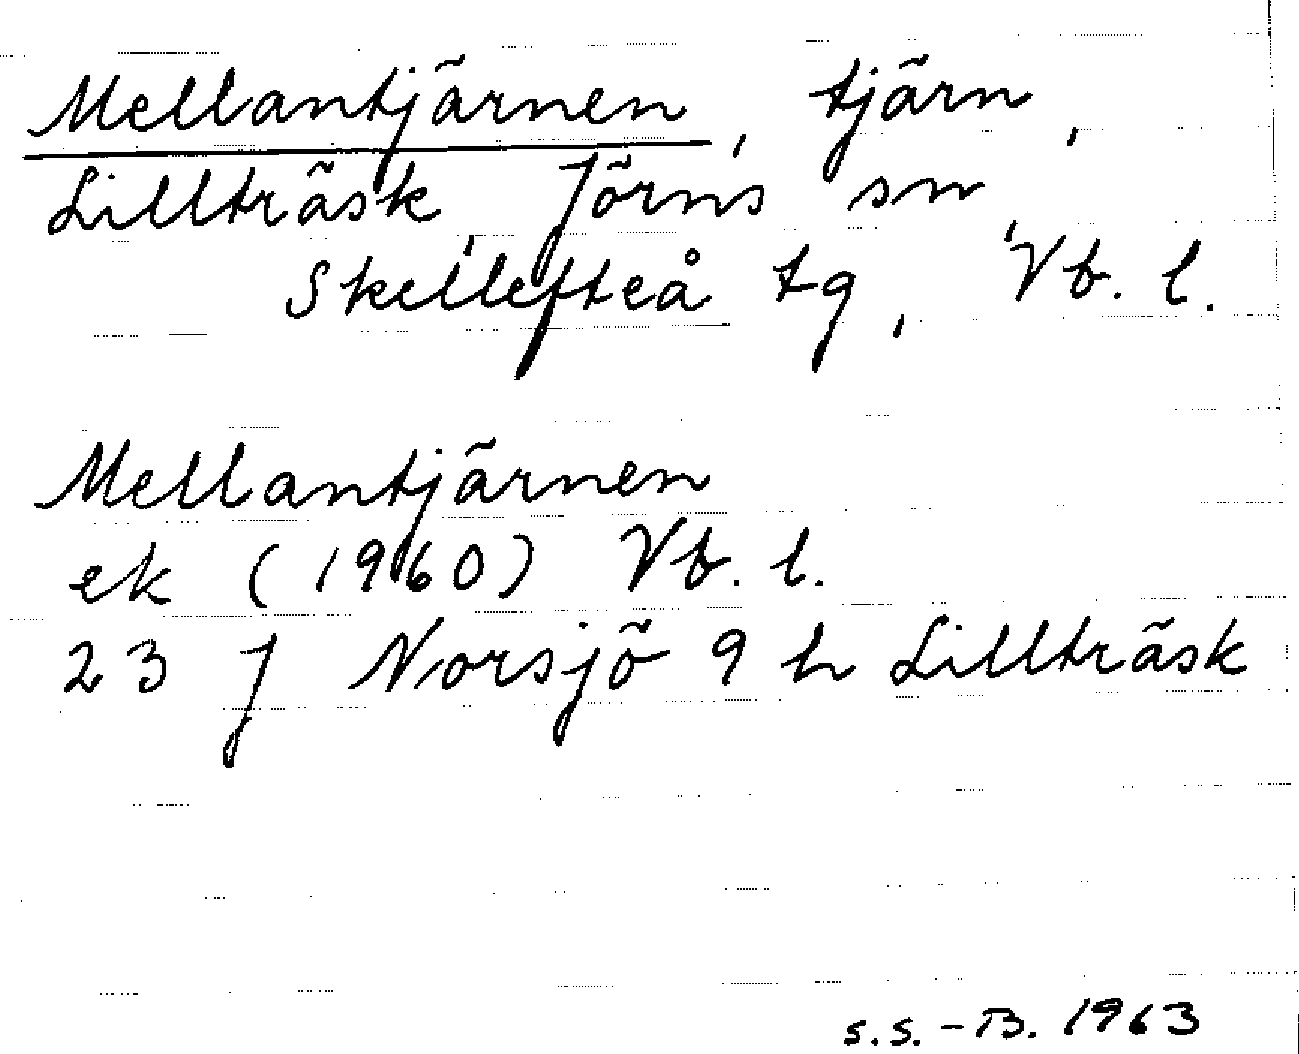 Mellantjärnen, tjärn,
Lillträsk, Jörns sn,
Skellefteå tg, Vb. l.
Mellantjärnen
ek (1960) Vb. l.
23 J Norsjö 9 h Lillträsk
S.S.-B. 1963